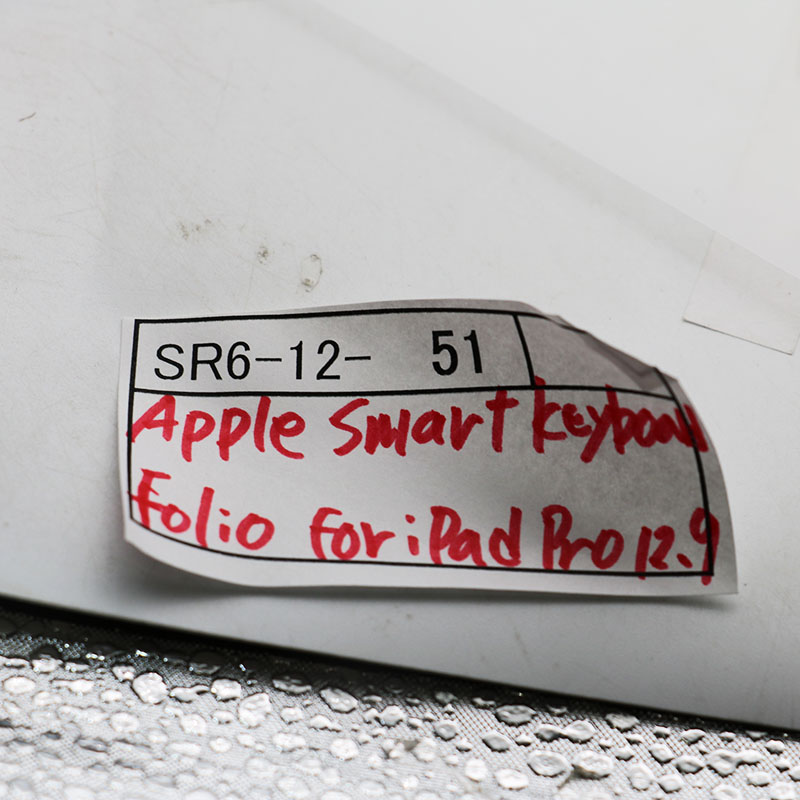 SR6-12- 51
Apple Smart keyboard
Folio for iPad Pro 12.9